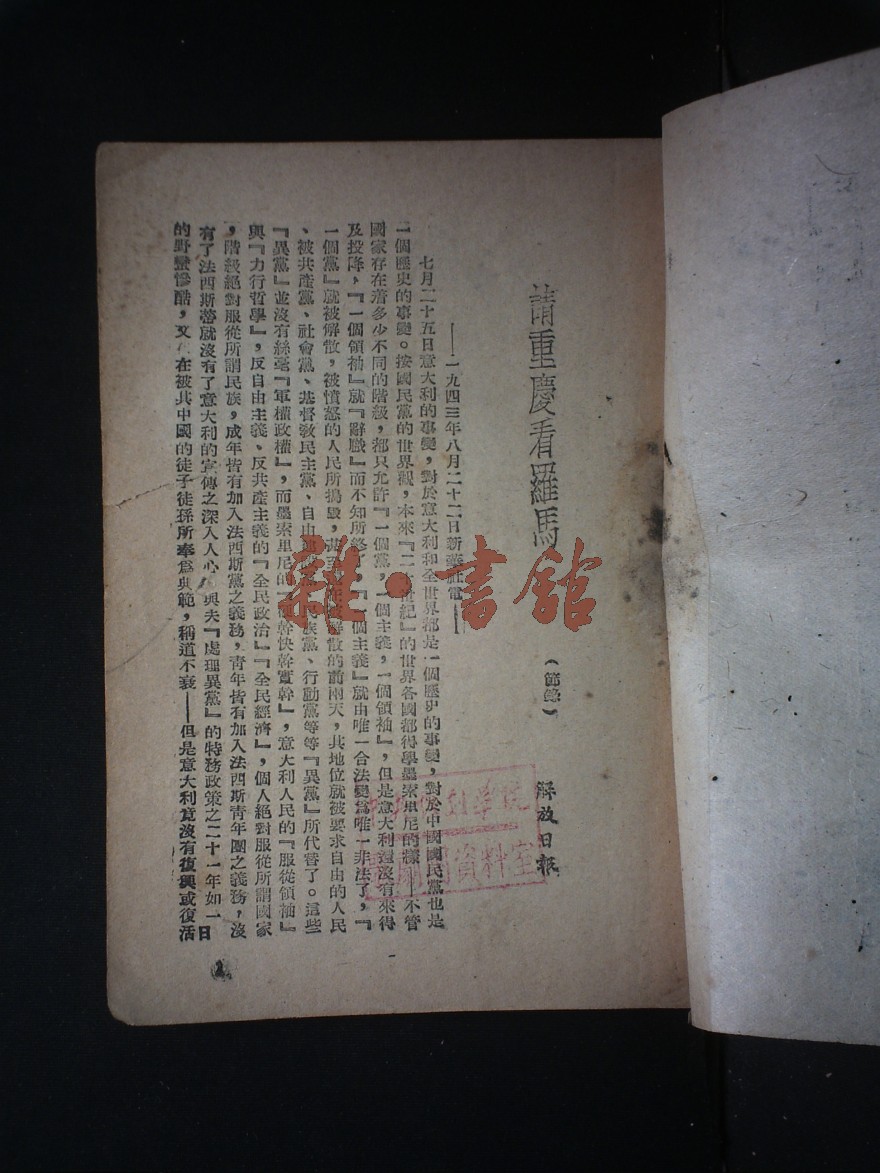 請重慶看羅馬
（節錄）
解放日報
——一九四三年八月二十二日新華社電——
七月二十五日意大利的事變，對於意大利和全世界都是一個歷史的事變，對於中國國民黨也是
一個歷史的事變。按國民黨的世界觀，本來『二 世紀』的世界各國都得學墨索里尼的樣——不管
國家存在着多少不同的階級，都只允許『一個黨，一個主義，一個領袖』，但是意大利還沒有來得
及投降，『一個領袖』就『辭職』而不知所終 『一個主義』就由唯一合法變爲唯一非法了，『
一個黨』就被解散，被憤怒的人民所搗毀，甚至 在被解散的前兩天，其地位就被要求自由的人民
、被共產黨、社會黨、基督教民主黨、自由 民族黨、行動黨等等『異黨』所代替了。這些
『異黨』並沒有絲毫『軍權政權』，而墨索里尼的『 幹快幹實幹』，意大利人民的『服從領袖』
與『力行哲學』，反自由主義、反共產主義的『全民政治』『全民經濟』，個人絕對服從所謂國家
，階級絕對服從所謂民族，成年皆有加入法西斯黨之義務，青年皆有加入法西斯青年團之義務，沒
有了法西斯蒂就沒有了意大利的宣傳之深入人心，與夫『處理異黨』的特務政策之二十一年如一日
的野蠻慘酷，又 在被其中國的徒子徒孫所奉爲典範，稱道不衰——但是意大利竟沒有復興或復活
雜·書館
資料室